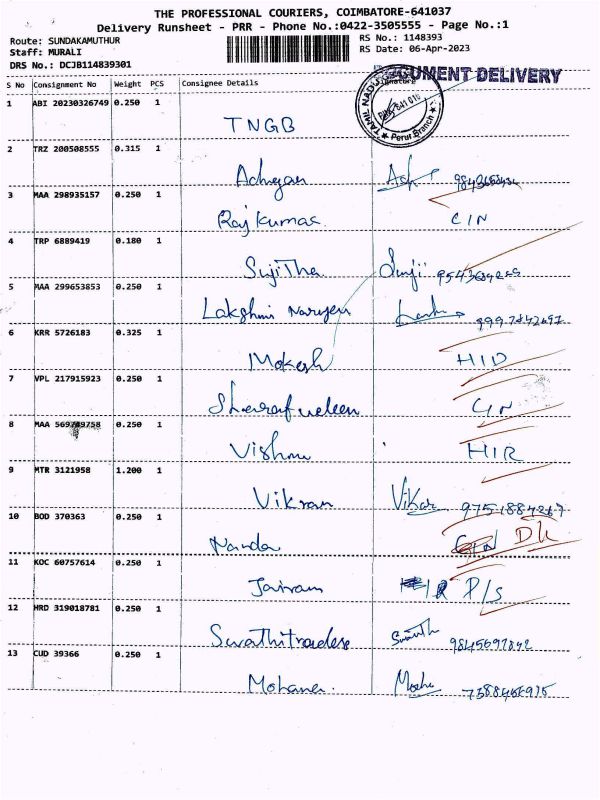 THE PROFESSIONAL COURIERS, COIMBATORE-641037
Delivery Runsheet - PRR - Phone No.:0422-3505555 - Page No.:1
Route: SUNDAKAMUTHUR
Staff: MURALI
DRS No.: DCJB114839301
RS No.: 1148393
RS Date: 06-Apr-2023
DOCUMENT DELIVERY
TAMIL NADU
Perur Branch
S No Consignment No Weight PCS Consignee Details Signature
1 ABI 20230326749 0.250 1
TNGB
2 TRZ 200508555 0.315 1
Adhegan Ash
3 MAA 298935157 0.250 1
Raj Kumar CIN
4 TRP 6889419 0.180 1
SujiTha Suji
5 MAA 299653853 0.250 1
Lakshmi Narayen
6 KRR 5726183 0.325 1
Mokesh HID
7 VPL 217915923 0.250 1
CIN
8 MAA 1
0.250
Vishnu HIR
9 MTR 3121958 1.200 1
Vikram Vikar 9751884267
10 BOD 370363 0.250 1
Nanda DK
11 KOC 60757614 0.250 1
Jairam P/S
12 HRD 319018781 0.250 1
Swathitraders Swath
13 CUD 39366 0.250 1
Mohana